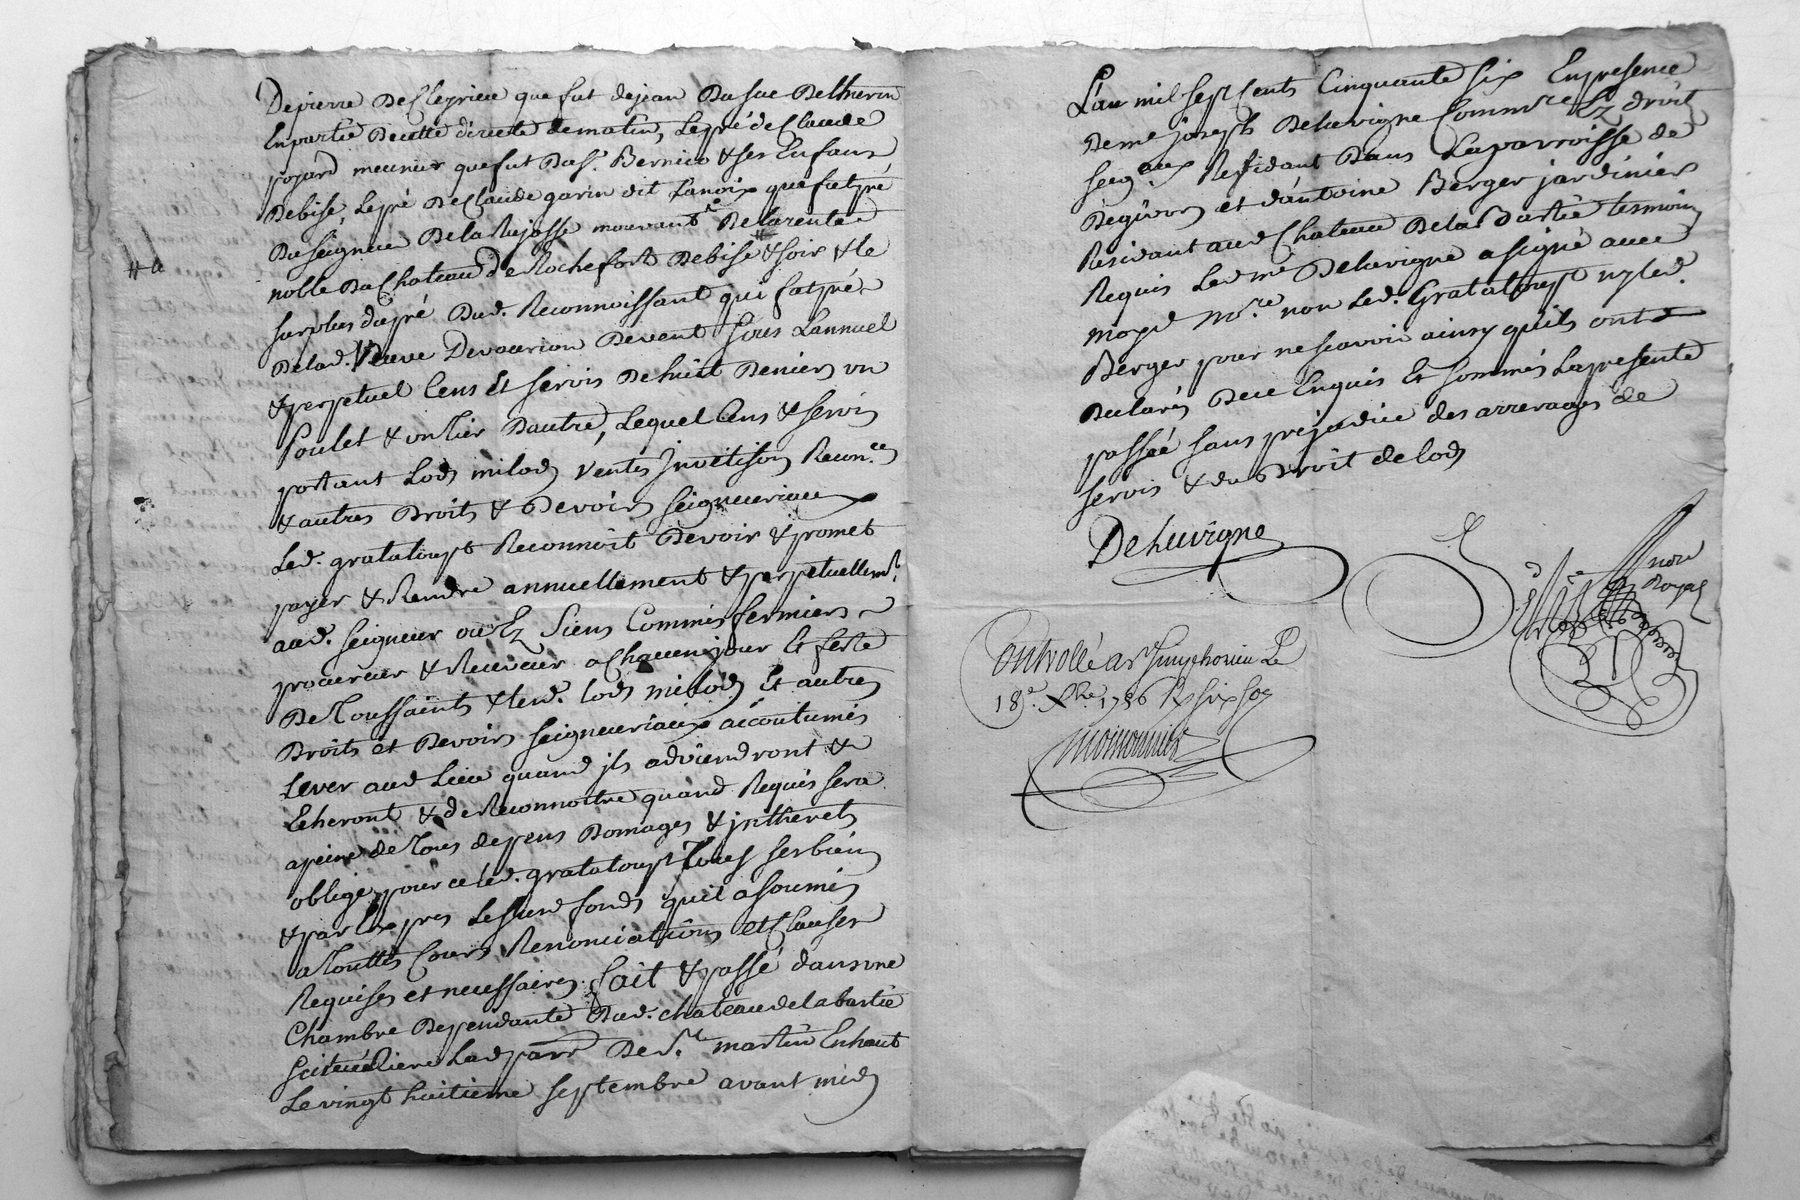 De pierre De Cleprieu que fut de jean Du suc De Thurin
En partie De cette directe de matin, Le pré de Claude
pojard meunier que fut Du Sr. Bernico & ses Enfans
De bise, Le pré De Claude garin dit Lanoix que fut pré
Du seigneur De la Rejasse mouvant De la rente
noble Du Chateau De Rochefort De bise & soir & le
# a
surplus du pré Dud. Reconnoissant qui fut pré
De lad. Veuve De vourion Devent Sous Lannuel
& perpetuel Cens Et servis De huit Deniers un
Poulet & un tier Dautre, Lequel Cens & servis
portant Lods milods Ventes Invetisons Recon.ces
& autres Droits & Devoirs seigneuriaux
Led. grataloupt Reconnoit Devoir & promet
payer & Rendre annuellement & perpetuellemt.
aud. seigneur ou Ez Siens Commis fermiers
procureur & Receveur a Chacun jour & feste
De Toussaints & lesd. lods milods Et autres
Droits et Devoirs seigneuriaux accoutumés
Lever aud Lieu quand jls adviendront &
Echeront & de Reconnoitre quand Requis sera
a peine de Tous depens Domages & jntherets
oblige pour ce led. grataloupt Tous ses biens
& par Exprès Lesusd fonds qu'il a soumis
a Touttes Cours Renonciations et Clauses
Requises et necessaires. fait & passé dans une
Chambre Dependante Dud. chateau de la bartie
scitué Riere Lad parr De St. martin En haut
Le vingt huitieme septembre avant midy
L'an mil sept Cents Cinquante six En presence
De me joseph Delavigne Commre Ez droit
seigaux Residant Dans La parroisse de
Degivors et d'antoine Berger jardinier
Residant aud Chateau De la Bartie temoins
Requis Led me Delavigne a signé avec
moyd no.re non Led. Grataloupt ny led.
Berger pour ne scavoir ainsy qu'ils ont
Declarés De ce Enquis Et sommés La presente
passée sans prejudice des arrerages de
servis & du Droit de lods
Delavigne
nore
Royal
Controllé a St. Simphorien Le
18e. 8bre. 1756 R six sos
moinonnier